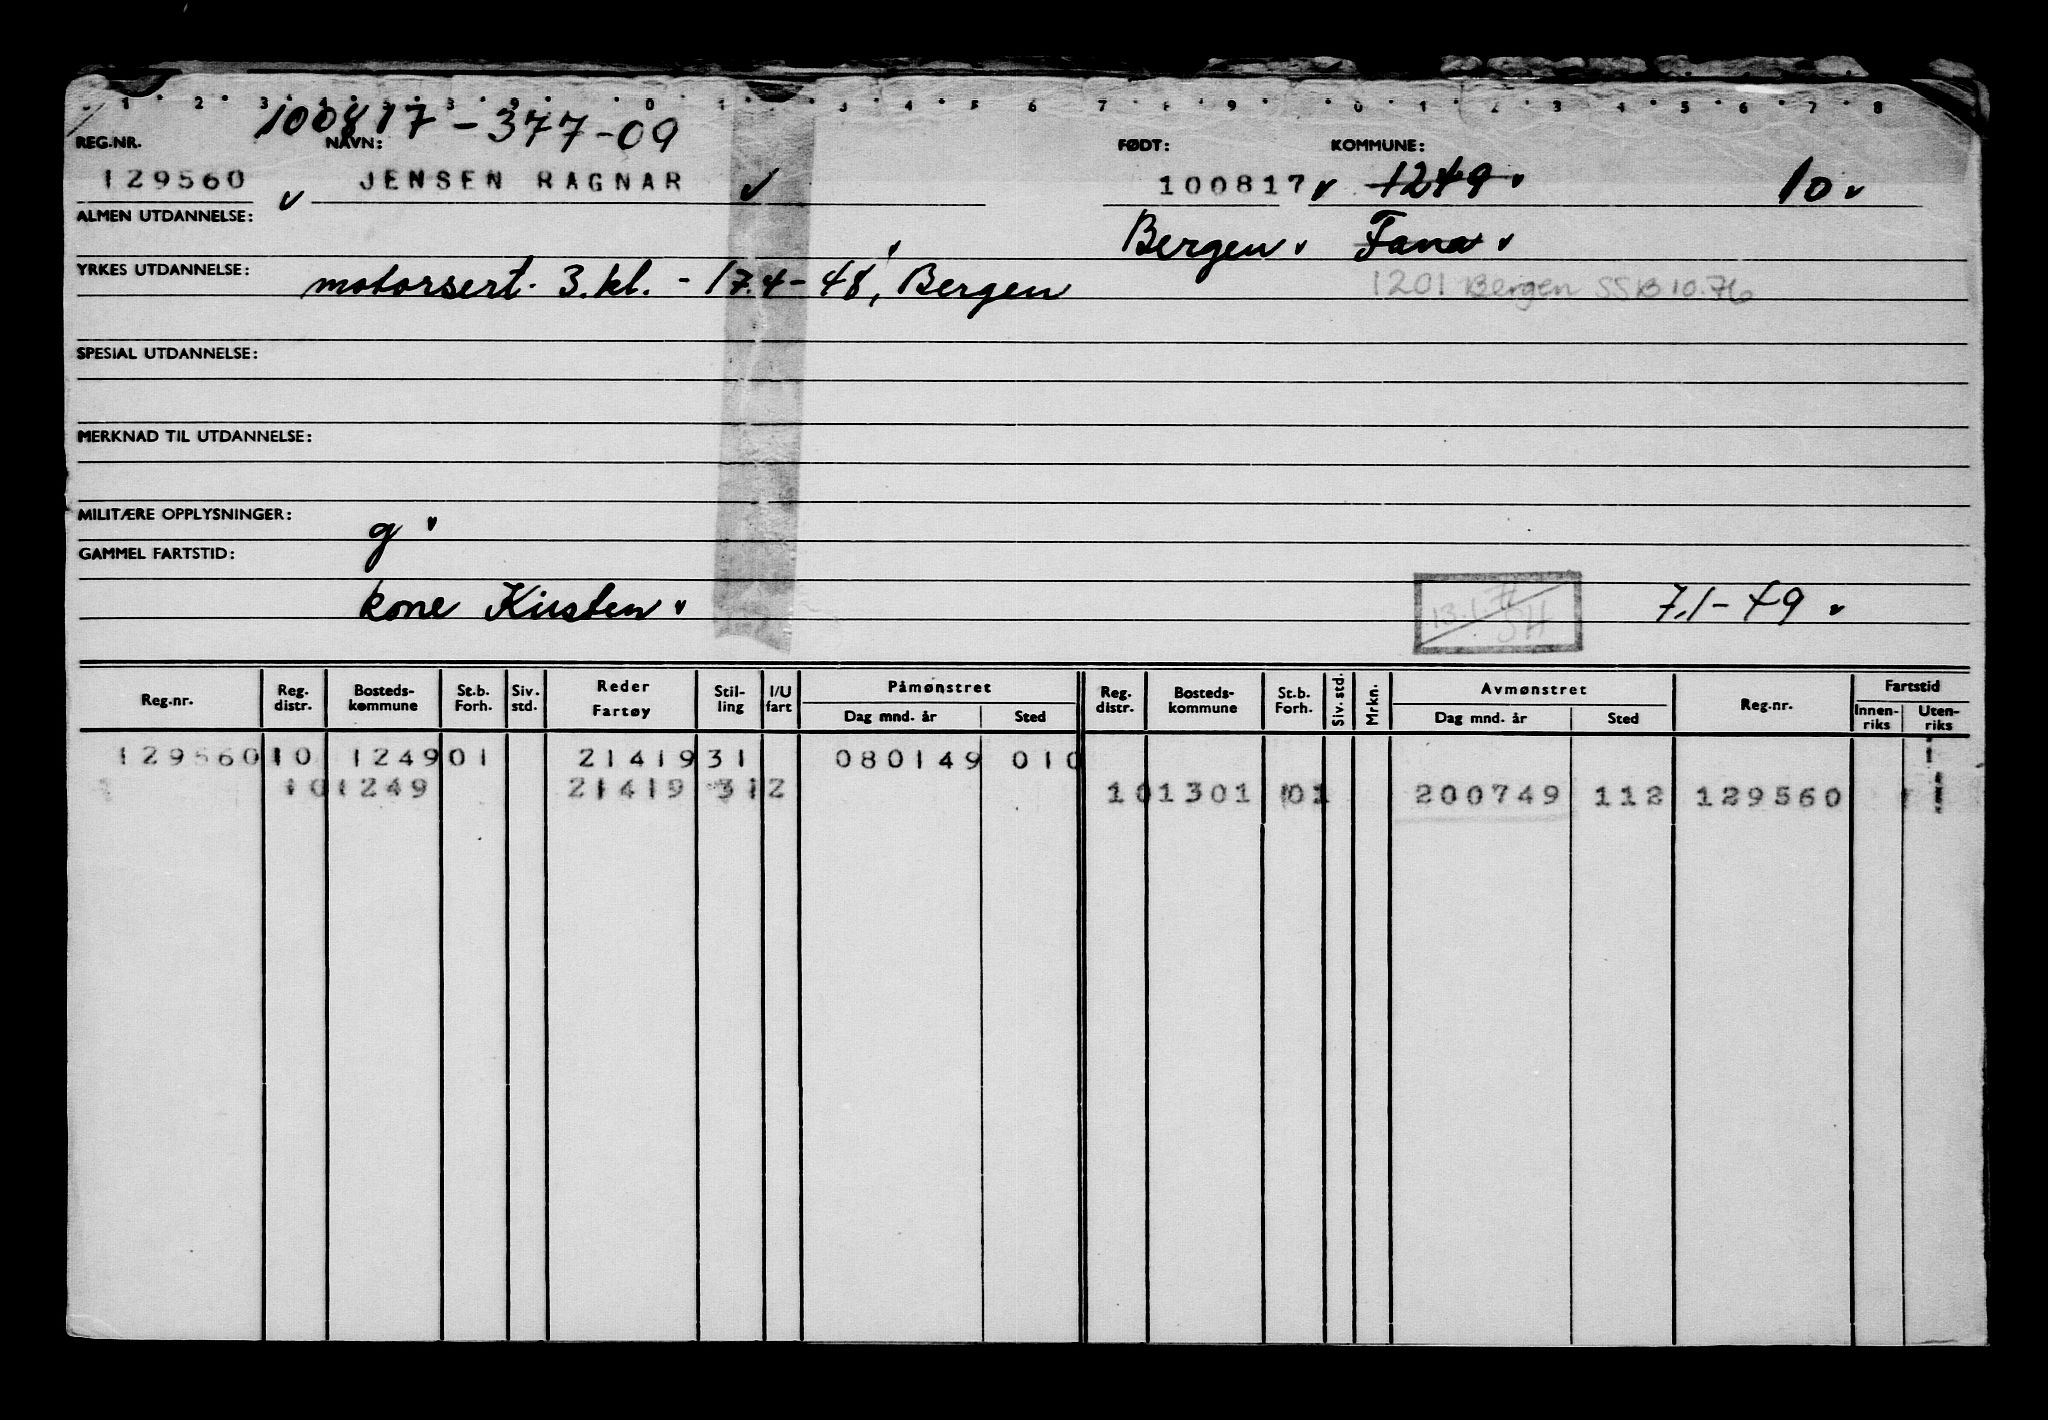 1 2 3 3 9 0 1 3 4 5 6 7 8 9 0 1 2 3 4 5 6 7 8
100817-377-09
REG.NR. NAVN: FØDT: KOMMUNE:
129560 JENSEN RAGNAR 100817 1249 10
ALMEN UTDANNELSE: Bergen Fana
YRKES UTDANNELSE: motorsert. 3. kl. - 17.4-48, Bergen 1201 Bergen SSB 10.76
SPESIAL UTDANNELSE:
MERKNAD TIL UTDANNELSE:
MILITÆRE OPPLYSNINGER: g
GAMMEL FARTSTID:
kone Kirsten 7.1-49
Reg.nr. Reg. distr. Bosteds-kommune St.b. Forh. Siv. std. Reder Fartøy Stil-ling I/U fart Påmønstret Dag mnd. år Sted Reg. distr. Bosteds-kommune St.b. Forh. Siv. std. Mrkn. Avmønstret Dag mnd. år Sted Reg.nr. Fartstid Innen-riks Uten-riks
129560 10 1249 01 21419 31 080149 010
10 1249 21419 31 2 10 1301 01 200749 112 129560